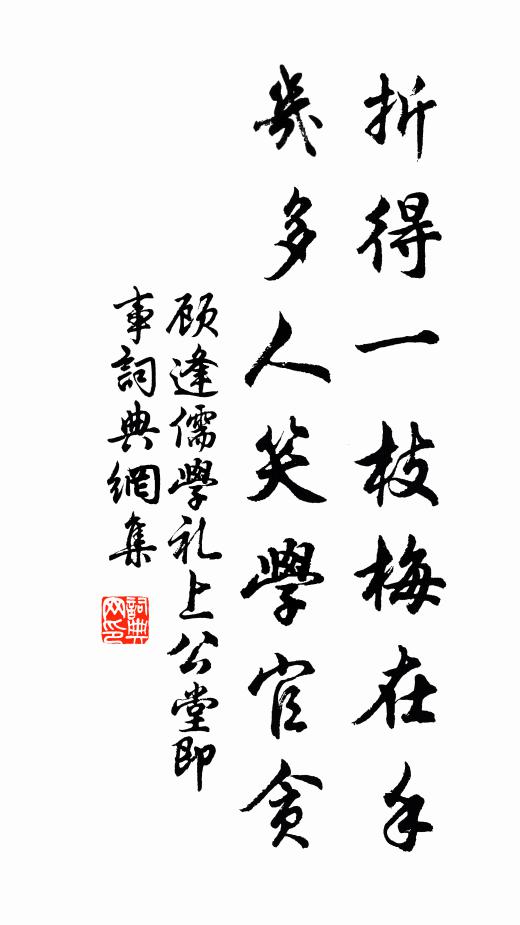 折得一枝梅在手
幾多人笑學官貪
顾逢儒學礼上公堂即
事詞典網集
詞典
网印